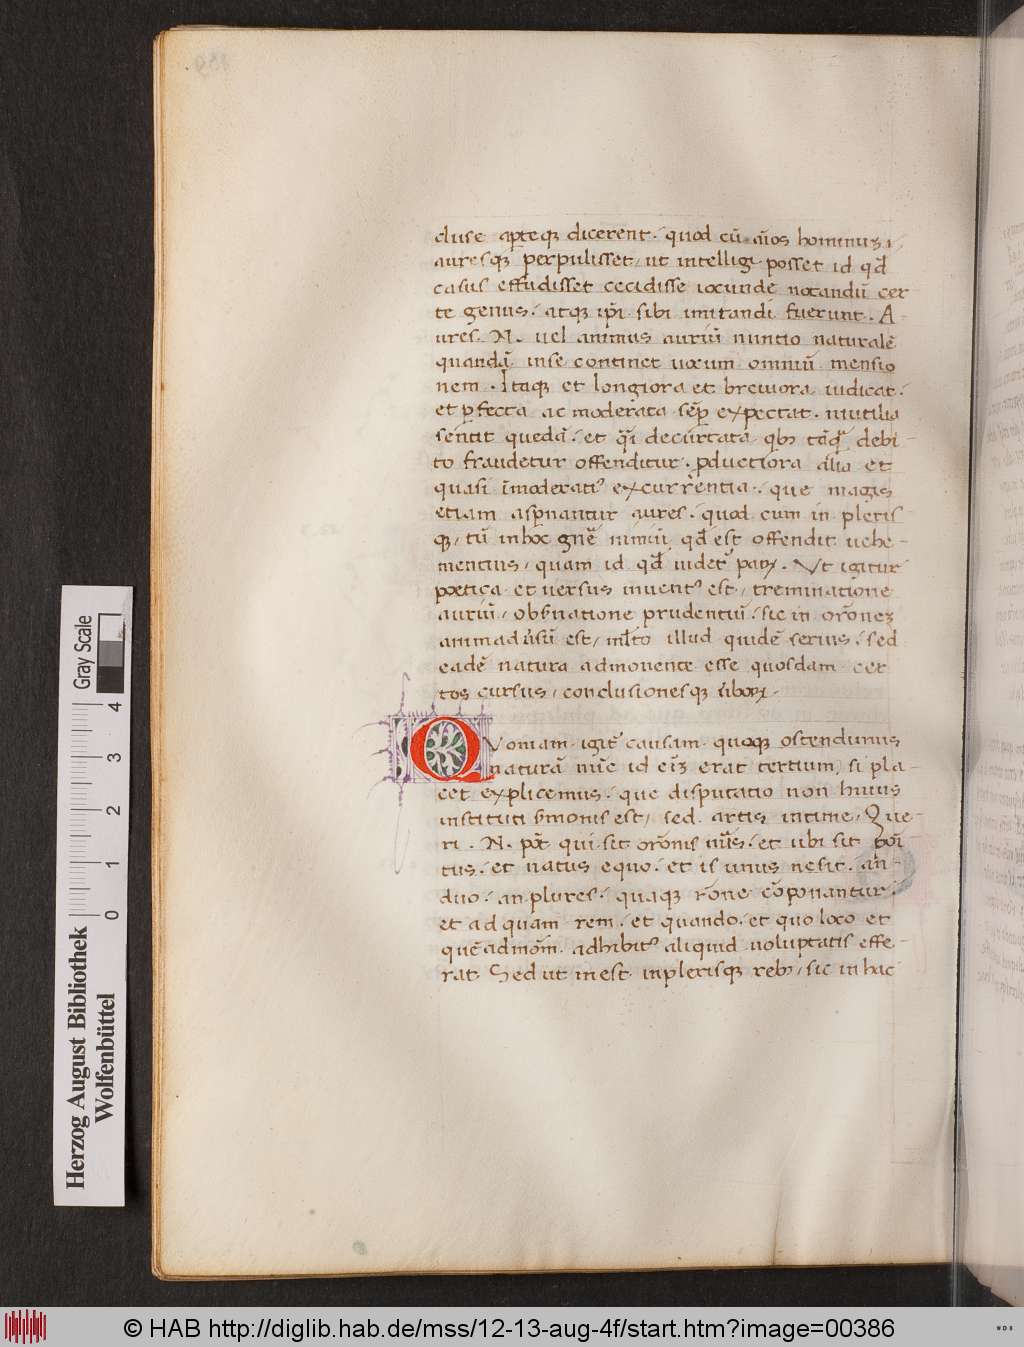 cluse aꝑteqꝫ dicerent · quod cū aīos hominuꝫ ·
auresqꝫ perpulisset / ut intelligi posset id qđ
casus effudisset cecidisse iocunde notandū cer
te genus · atqꝫ ip̄i sibi imitandi fuerunt · A-
ures · N · uel animus auriū nuntio naturalē
quandā inse continet uocum omniū mensio
nem · Itaqꝫ et longiora et breuiora iudicat ·
et ꝑfecta ac moderata sēp expectat ·
sentit quedā · et decurtata qbꝫ debi-
to fraudetur offenditur · ꝓductiora alia et
quasi īmoderatiꝰ excurrentia · que magis
etiam asꝑnantur aures · quod cum in pleris
qꝫ / tū inhoc gn̄e nimiū qđ est offendit uehe-
mentius / quam id qđ uidet᷑ paꝝ · Ut igitur
poetica et uersus inuentꝰ est / treminatione
auriū / obẜuatione prudentiū / sic in or̄one
animaduẜū est / ml̄to illud quidē serius · sed
eadē natura admonente esse quosdam cer
tos cursus / conclusionesqꝫ
QVoniam igit᷑ causam quoqꝫ ostendimus
naturā nūc id erat tertium / si pla-
cet explicemus · que disputatio non huius
instituti ẜmonis est / sed artis intime / Que
ri · N · pōt qui sit or̄onis · et ubi sit
tus · et natus equo · et is unus nesit · an
duo · an plures · quaqꝫ rōne cōponantur ·
et ad quam rem · et quando · et quo loco et
quēadmōm adhibitꝰ aliquid uoluptatis effe-
rat · Sed ut inest inplerisqꝫ rebꝫ / sic inhac
Herzog August Bibliothek
Wolfenbüttel
Gray Scale
0 1 2 3 4
© HAB http://diglib.hab.de/mss/12-13-aug-4f/start.htm?image=00386